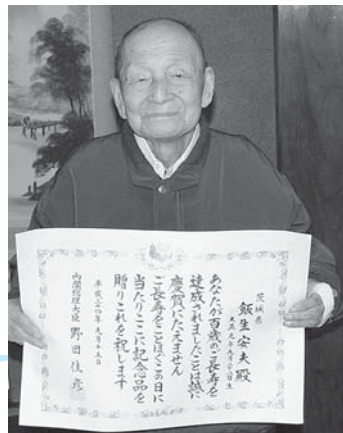 茨城県
飯生安夫殿
大正元年九月二十八日生
あなたが百歳のご長寿を
達成されましたことは誠に
慶賀にたえません
ご長寿をことほぐこの日に
当たりここに記念品を
贈りこれを祝します
平成二十四年九月十五日
内閣総理大臣 野田佳彦